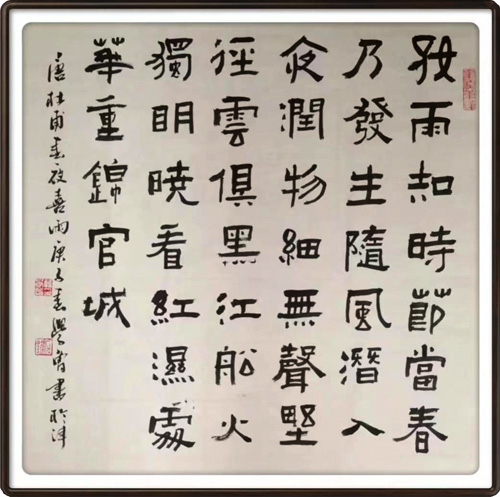 好雨知時節當春
乃發生隨風潛入
夜潤物細無聲野
徑雲俱黑江船火
獨明曉看紅濕處
華重錦官城
唐杜甫春夜喜雨庚子春書於津